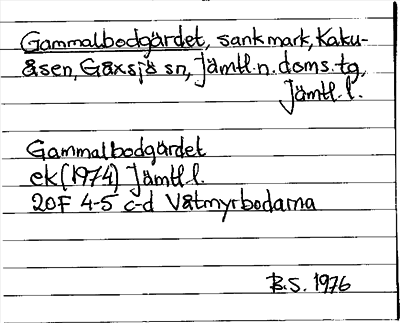 Gammalbodgärdet, sank mark, Kaku-
åsen, Gåxsjö sn, Jämtl. n. doms. tg,
Jämtl. l.
Gammalbodgärdet
ek (1974) Jämtl l.
20F 4-5 c-d Våtmyrbodarna
B.S. 1976